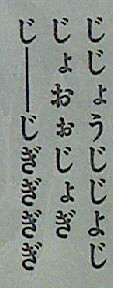 じじょうじじよじ
じょおぉじょぎ
じ――じぎぎぎぎ